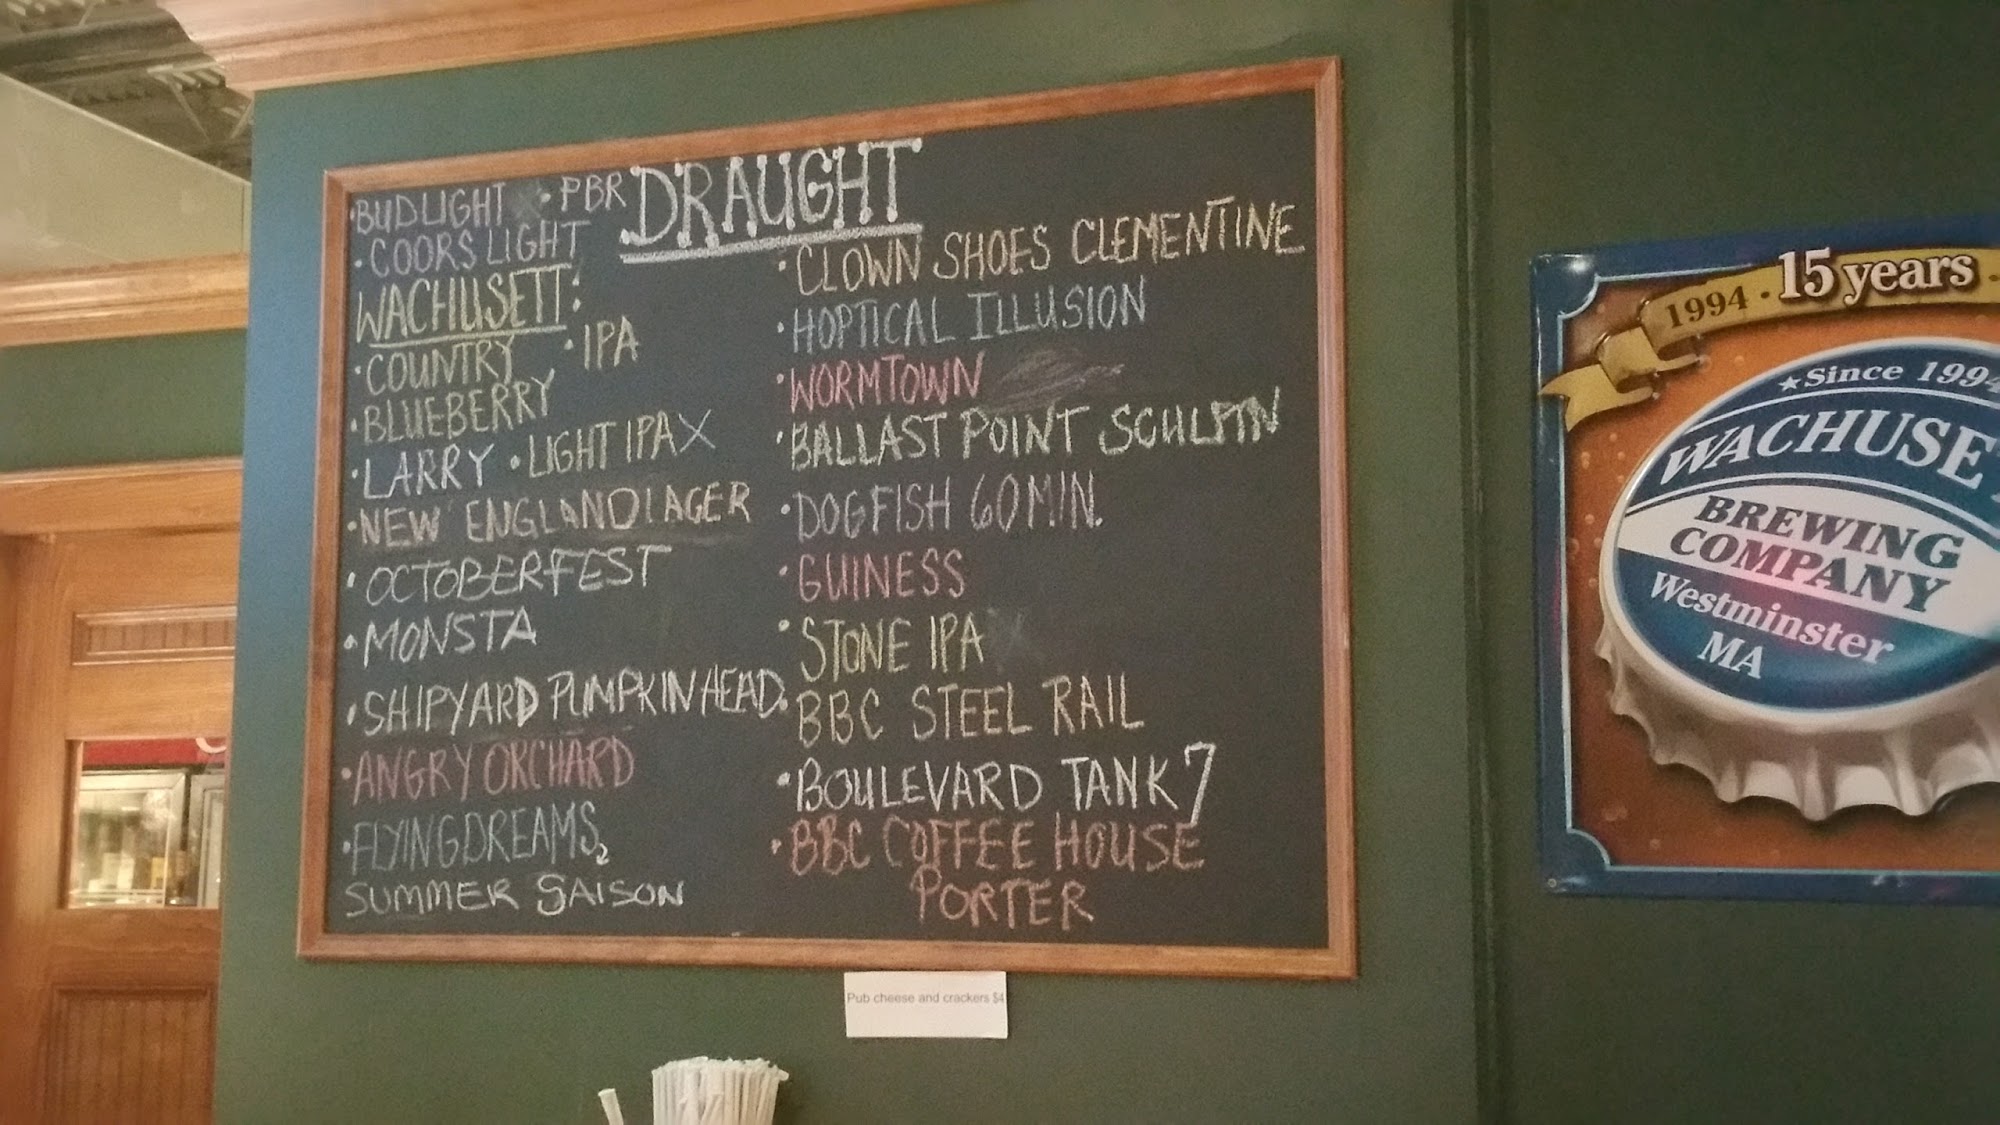 DRAUGHT
• BUDLIGHT • PBR
• COORS LIGHT
WACHUSETT:
• COUNTRY • IPA
• BLUEBERRY
• LARRY • LIGHT IPA X
• NEW ENGLAND LAGER
• OCTOBERFEST
• MONSTA
• SHIPYARD PUMPKINHEAD
• ANGRY ORCHARD
• FLYING DREAMS
SUMMER SAISON
• CLOWN SHOES CLEMENTINE
• HOPTICAL ILLUSION
• WORMTOWN
• BALLAST POINT SCULPIN
• DOGFISH 60 MIN.
• GUINESS
• STONE IPA
• BBC STEEL RAIL
• BOULEVARD TANK 7
• BBC COFFEE HOUSE
PORTER
Pub cheese and crackers $4
1994 • 15 years
★ Since 1994
WACHUSE
BREWING
COMPANY
Westminster
MA